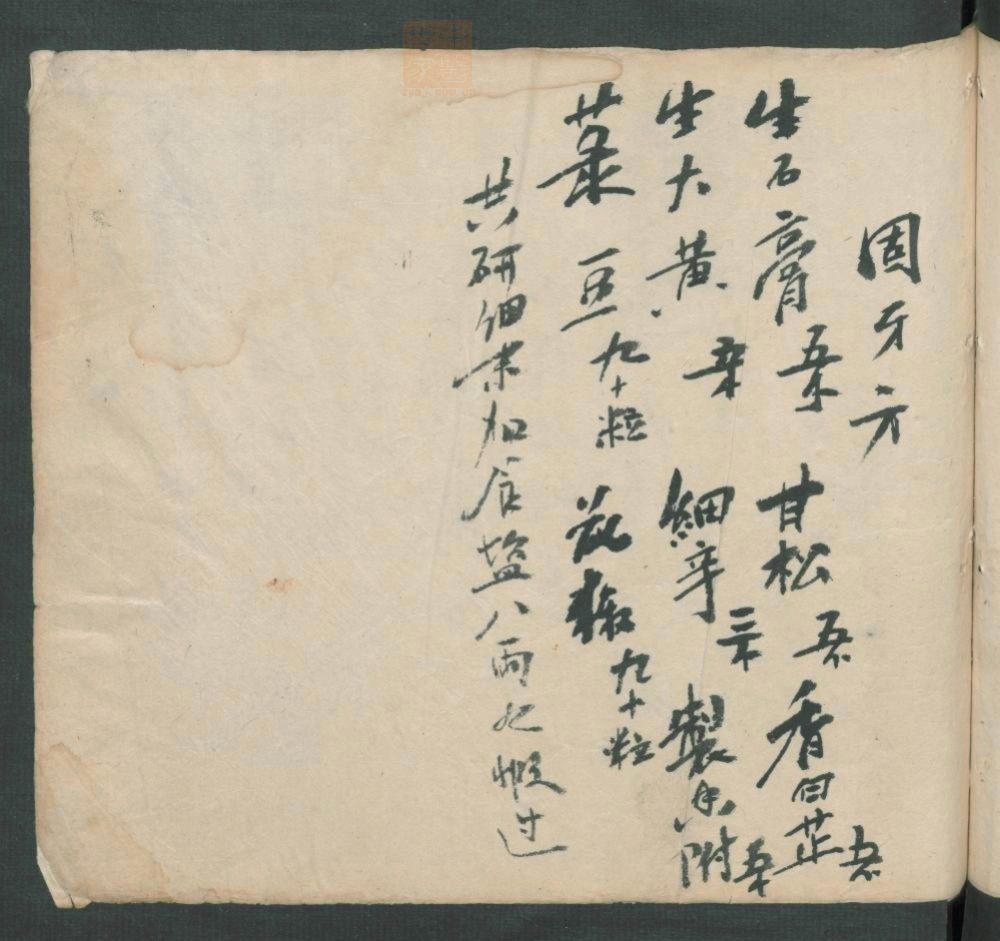 固牙方
生石膏 五錢 甘松 五錢 香白芷 五錢
生大黄 五錢 細辛 三錢 製香附 五錢
菉豆 九十粒 花椒 九十粒
共研细末加食塩八両煅过